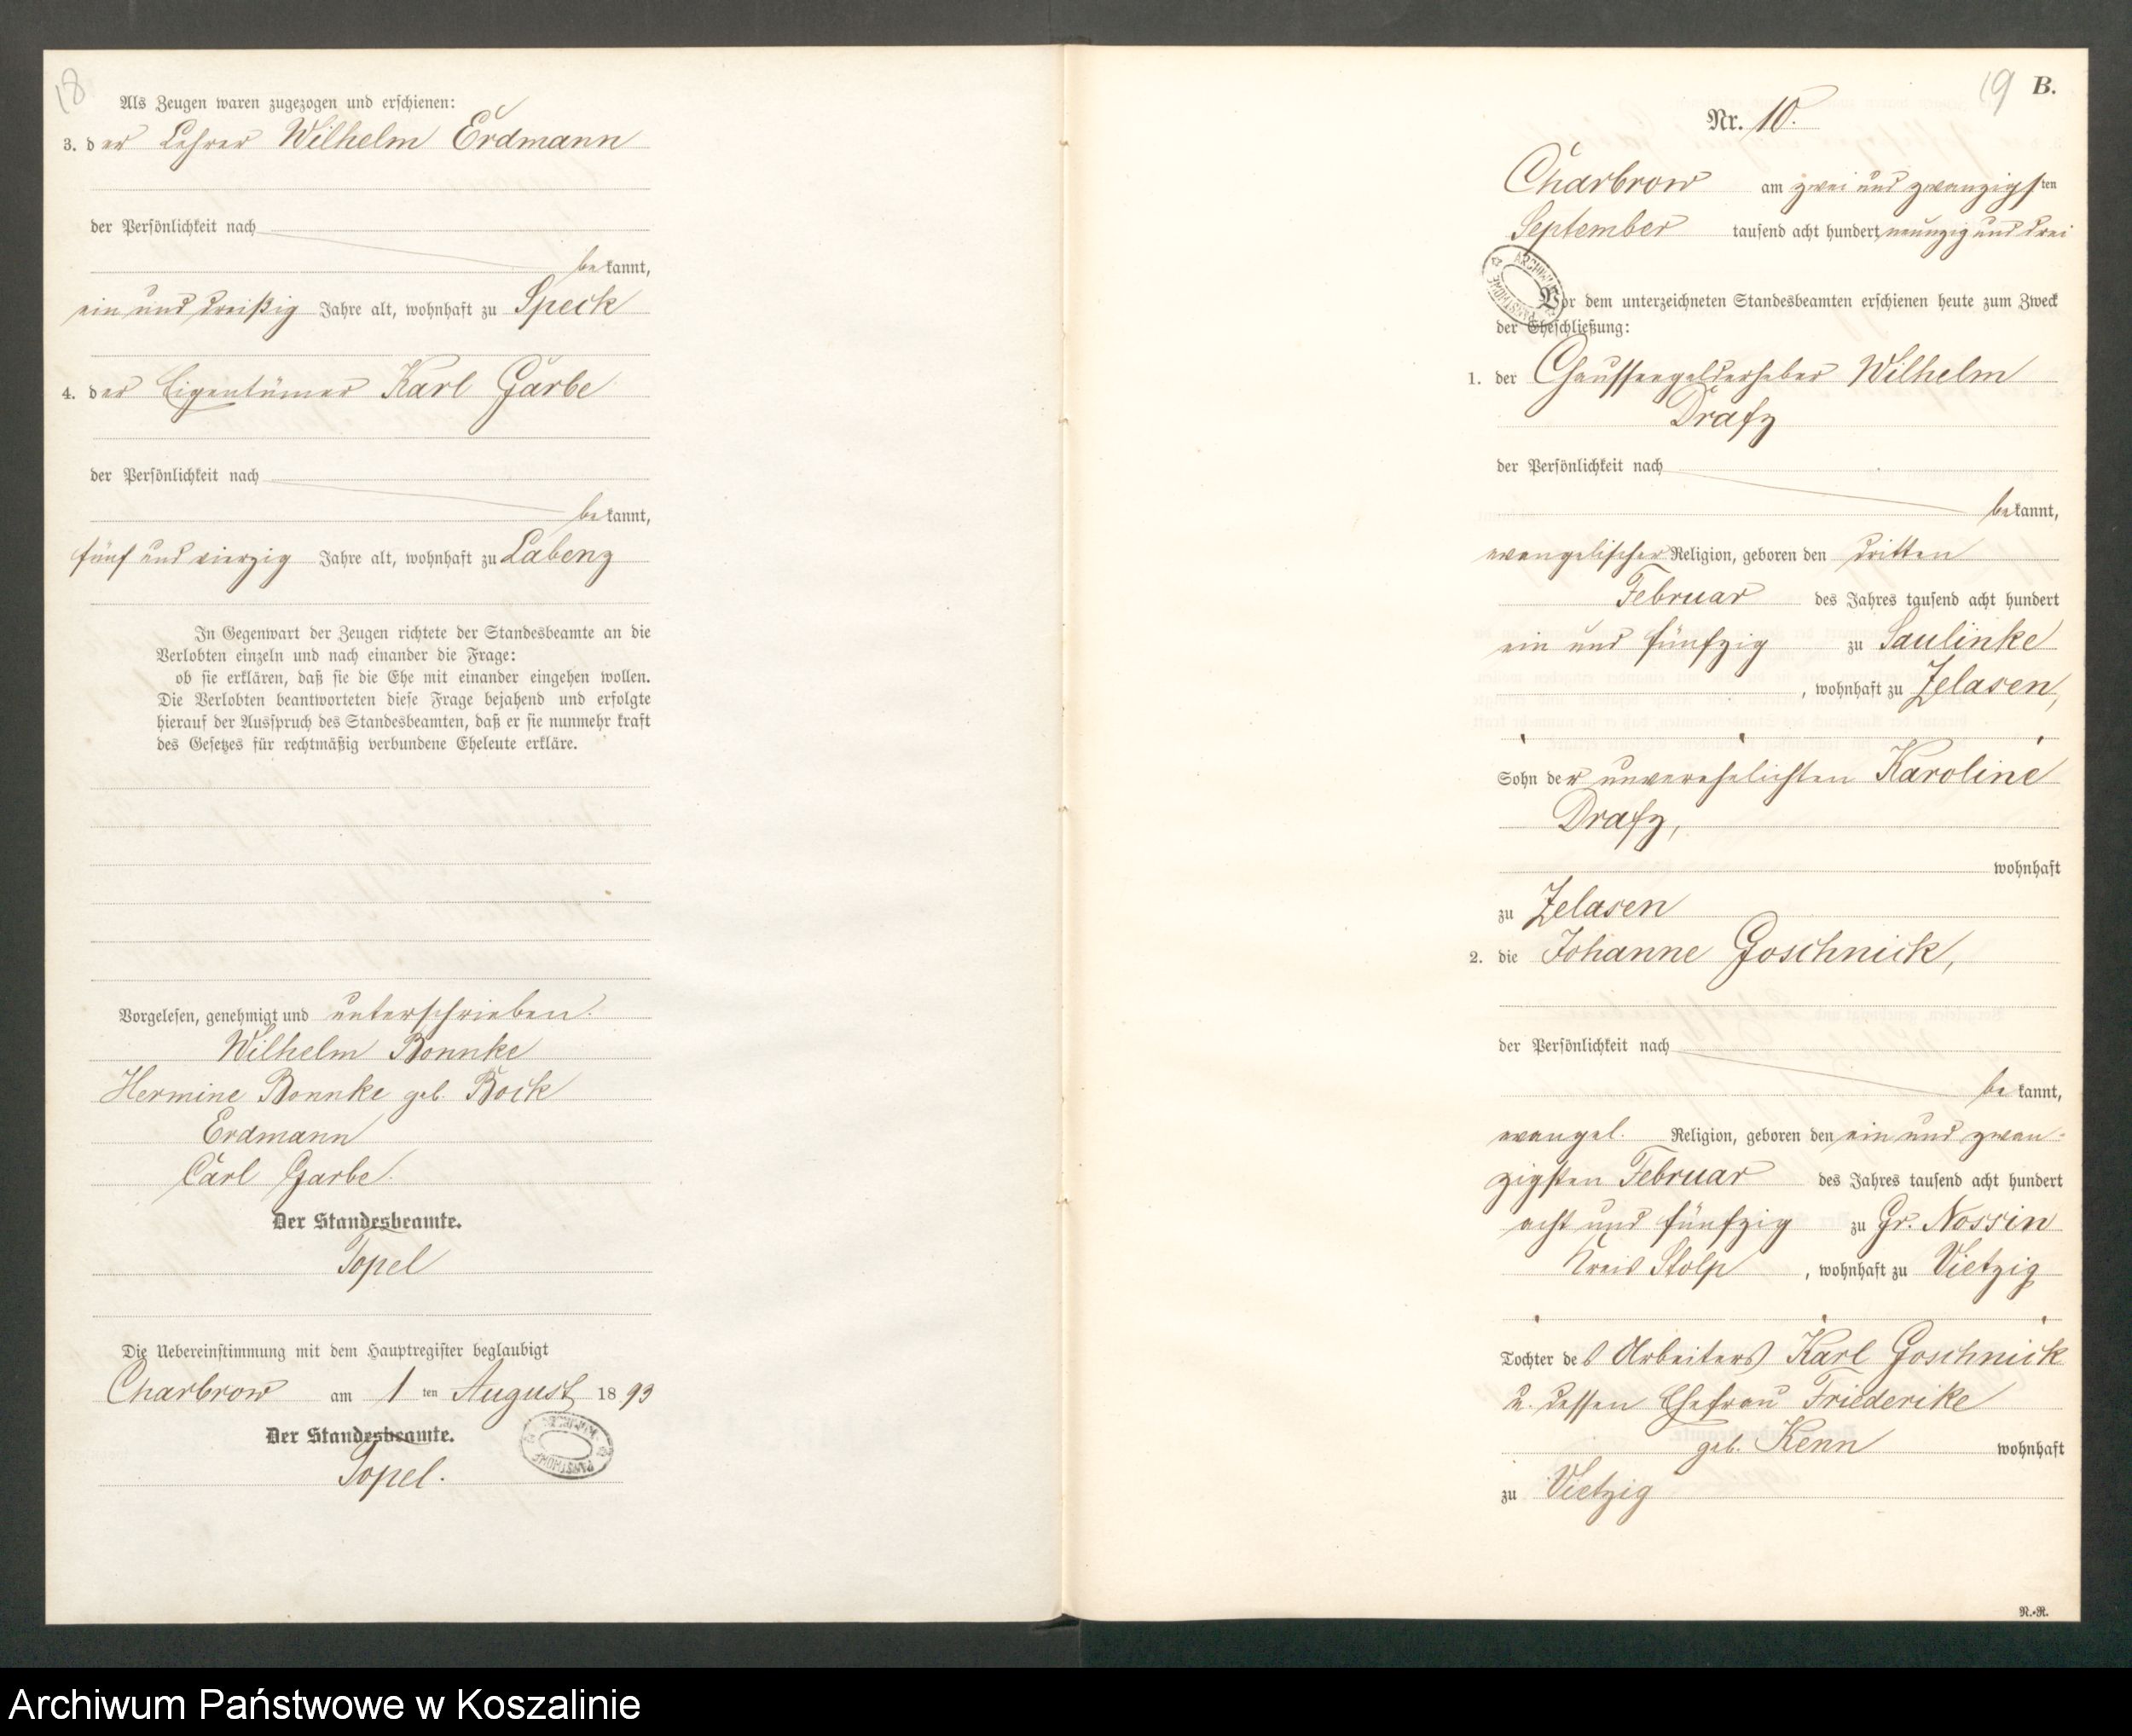 18
Als Zeugen waren zugezogen und erschienen:
3. der Lehrer Wilhelm Erdmann
der Persönlichkeit nach
bekannt,
ein und dreißig Jahre alt, wohnhaft zu Speck
4. der Eigentümer Karl Garbe
der Persönlichkeit nach
bekannt,
fünf und vierzig Jahre alt, wohnhaft zu Labenz
In Gegenwart der Zeugen richtete der Standesbeamte an die
Verlobten einzeln und nach einander die Frage:
ob sie erklären, daß sie die Ehe mit einander eingehen wollen.
Die Verlobten beantworteten diese Frage bejahend und erfolgte
hierauf der Ausspruch des Standesbeamten, daß er sie nunmehr kraft
des Gesetzes für rechtmäßig verbundene Eheleute erkläre.
Vorgelesen, genehmigt und unterschrieben.
Wilhelm Bonnke
Hermine Bonnke geb. Bock
Erdmann
Carl Garbe.
Der Standesbeamte.
Topel
Die Uebereinstimmung mit dem Hauptregister beglaubigt
Charbrow am 1ten August 1893
Der Standesbeamte.
Topel.
19 B.
Nr. 10.
Charbrow am zwei und zwanzigsten
September tausend acht hundert neunzig und drei
Vor dem unterzeichneten Standesbeamten erschienen heute zum Zweck
der Eheschließung:
1. der Chausseegelderheber Wilhelm
Drafz
der Persönlichkeit nach
bekannt,
evangelischer Religion, geboren den dritten
Februar des Jahres tausend acht hundert
ein und fünfzig zu Saulinke
, wohnhaft zu Zelasen,
Sohn der unverehelichten Karoline
Drafz,
wohnhaft
zu Zelasen
2. die Johanne Goschnick,
der Persönlichkeit nach
bekannt,
evangel. Religion, geboren den ein und zwan-
zigsten Februar des Jahres tausend acht hundert
acht und fünfzig zu Gr. Nossin
Kreis Stolp , wohnhaft zu Vietzig
Tochter des Arbeiters Karl Goschnick
u. dessen Ehefrau Friederike
geb. Kenn wohnhaft
zu Vietzig
N.-R.
Archiwum Państwowe w Koszalinie